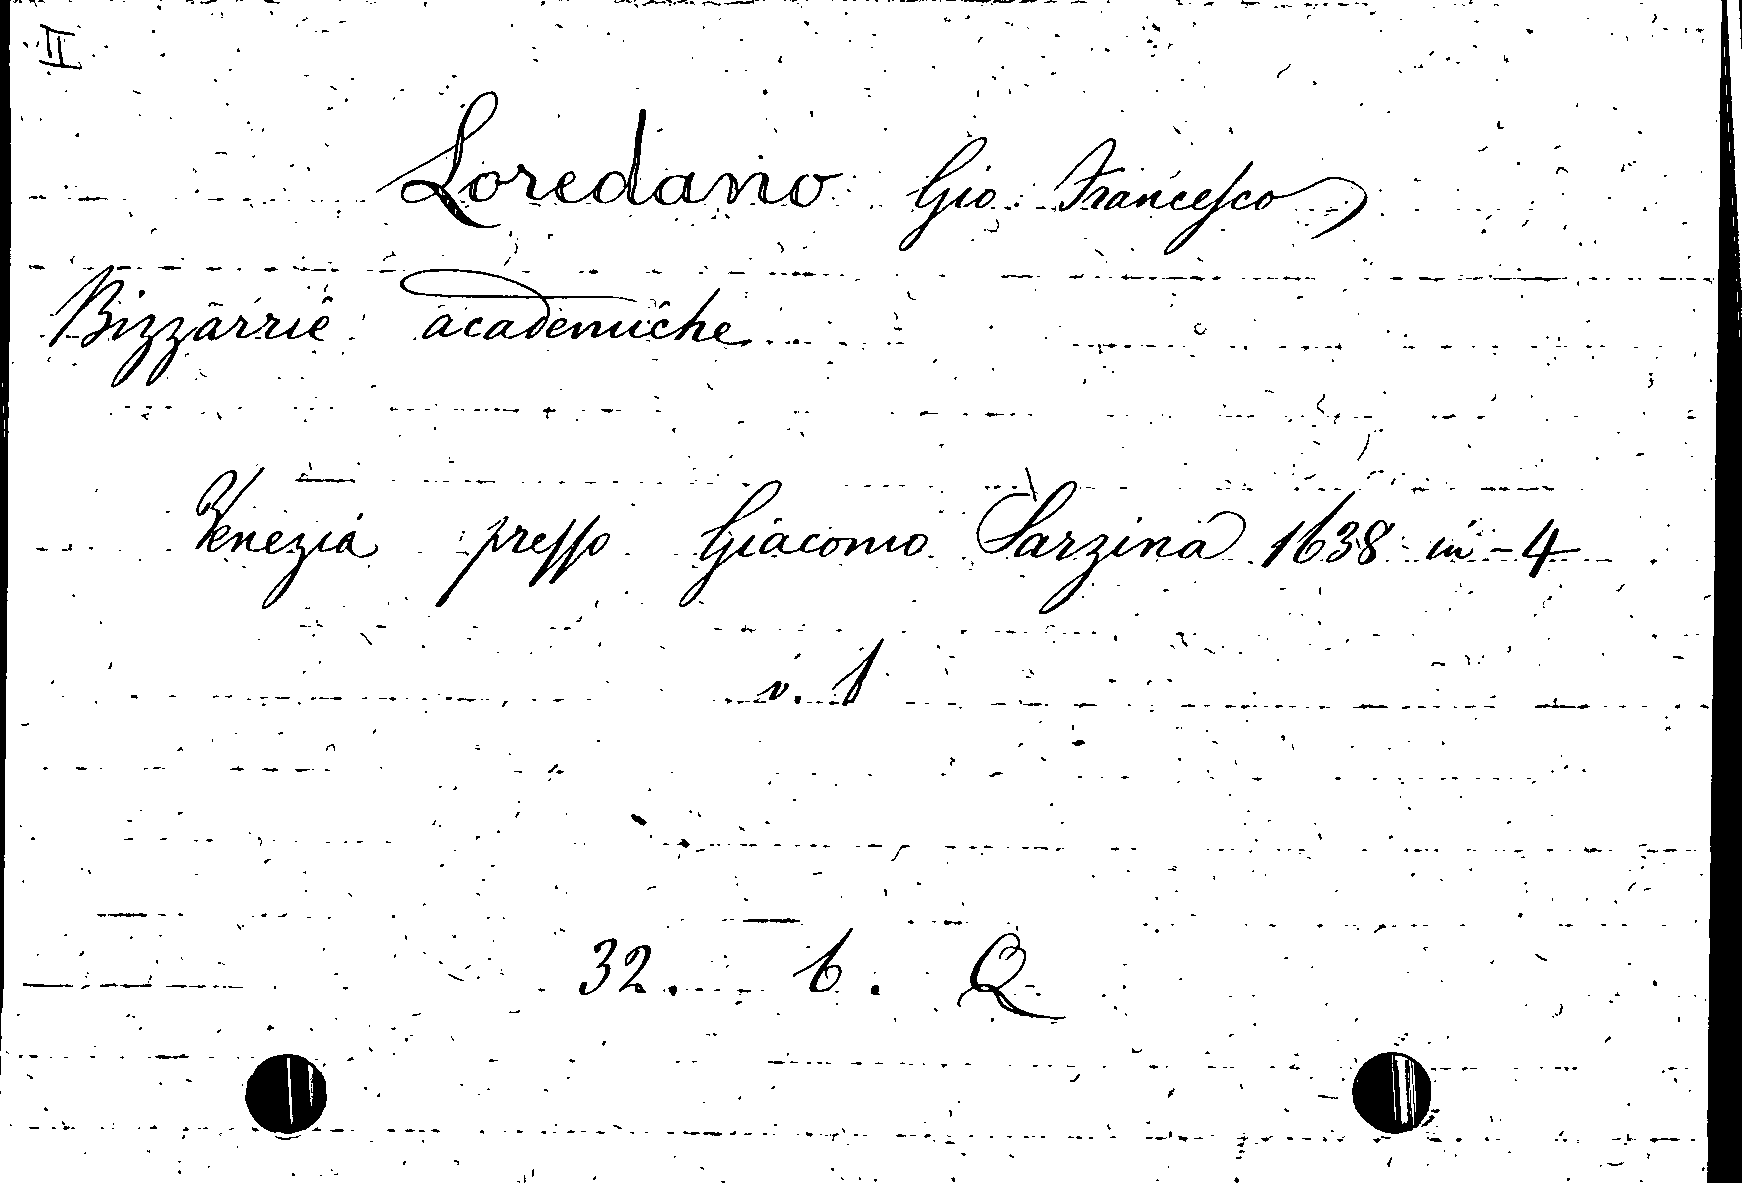 II
Loredano Gio: Francesco
Bizzarrie academiche
Venezia presso Giacomo Sarzina 1638 in-4
v. 1
32. b. Q